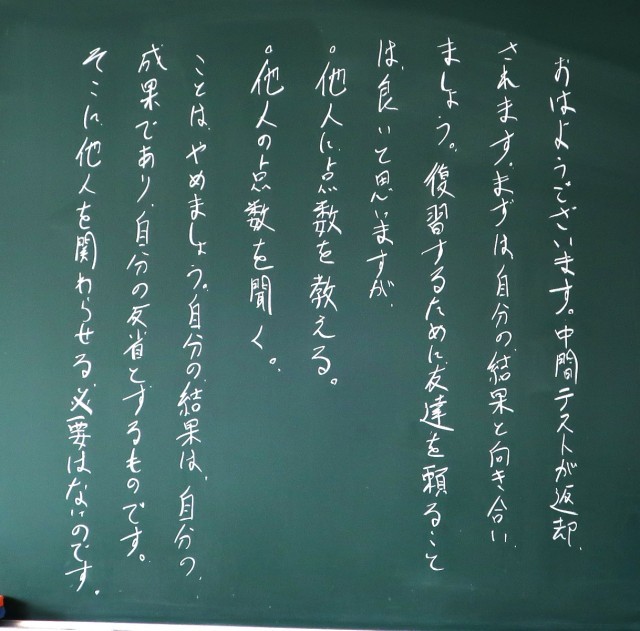 おはようございます。中間テストが返却
されます。まずは自分の結果と向き合い
ましょう。復習するために友達を頼ること
は、良いと思いますが、
。他人に点数を教える。
。他人の点数を聞く。
ことは、やめましょう。自分の結果は、自分の
成果であり、自分の反省とするものです。
そこに、他人を関わらせる必要はないのです。